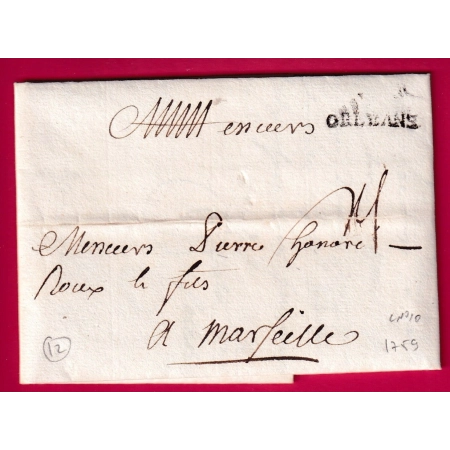 ORLEANS
Messieurs
Messieurs Pierre honoré
Roux le fils
a marseille
12
LN°10
1759